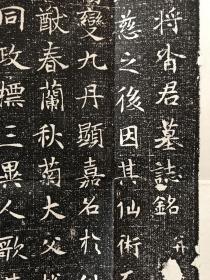 将君墓誌銘 并
慈之後因其仙術
變九丹顯嘉名於
猷春蘭秋菊大父
同政標三異人歌